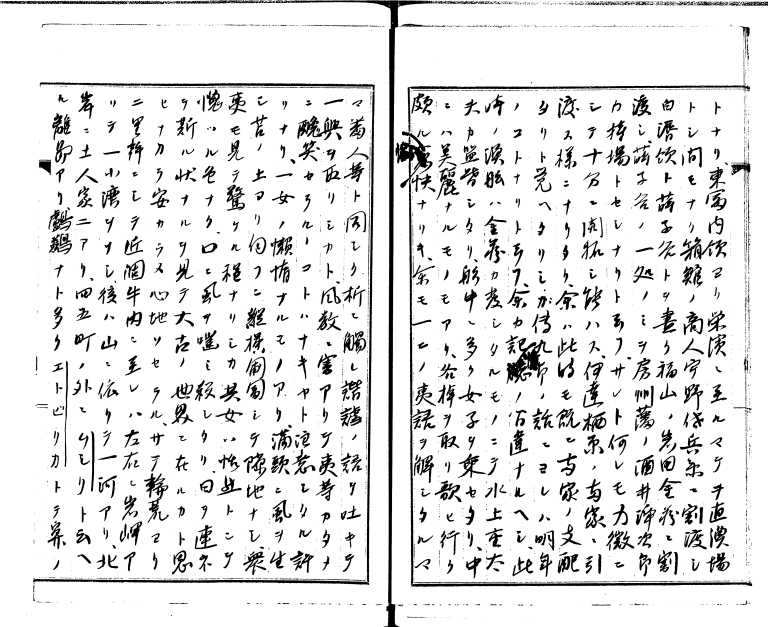 トナリ、東冨内領ヨリ栄濱ニ至ルマテヲ直漁場
トシ間モナリ箱館ノ商人宇野保兵衛ニ割渡シ
白濱領ト蕗子谷トヲ盡ク福山ノ岩田金藏ニ割
渡シ蕗子谷ノ一処ノミヲ房州藩ノ酒井淳次郎
カ持場トセシナリト云フ、サレト何レモ力微ニ
シテ十分ニ開拓シ能ハス、伊達栖原ノ両家ニ引
渡ス様ニナリタリ、余ハ此時モ既ニ両家ノ支配
タリト覚ヘタリシカ傳九郎ノ話ニヨレハ明年
ノコトナリト云フ、余カ記ノ百違ナルヘシ、此
時ノ漁船ハ金藏カ差シタルモノニテ水上重太
夫カ宰シタリ、船中ニ多ク女子ヲ乗セタリ、中
ニハ美麗ナルモノモアリ、各棹ヲ取リ歌ヒ行ク
頗ル快ナリキ、余モ一二ノ夷語ヲ解シタルマ
マ蕃人等ト同シク折ニ觸レ諧謔ノ語ヲ吐キテ
一興ヲ取リシカト、風教ニ害アリテ夷等カタメ
ニ醜笑セラルヽコトハナキヤト注意シタル許
リナリ、一女ノ懶惰ナルモノアリ満頭ニ風ヲ生
シ苫ノ上ヨリ匍フニ縦横匍匐シテ隙地ナシ衆
夷モ見テ驚ケル程ナリシカ其女ハ恬然トシテ
愧ツル色ナク、口ニ風ヲ噬ミ殺シタリ、日ヲ連ネ
テ斯ル状ナルヲ見テ太古ノ世界ニ在ルカト思
ヒナカラ安カラヌ心地ソセラル、サテ輪荒ヨリ
二里許ニシテ近個牛内ニ至レハ左右ニ岩岬ア
リテ一小灣ヲナシ後ハ山ニ依リテ一河アリ、北
岸ニ土人家二アリ、四五町ノ外ニシリトムヘ
ル離島アリ鸕鶿ナト多クエトピリカト云ノ